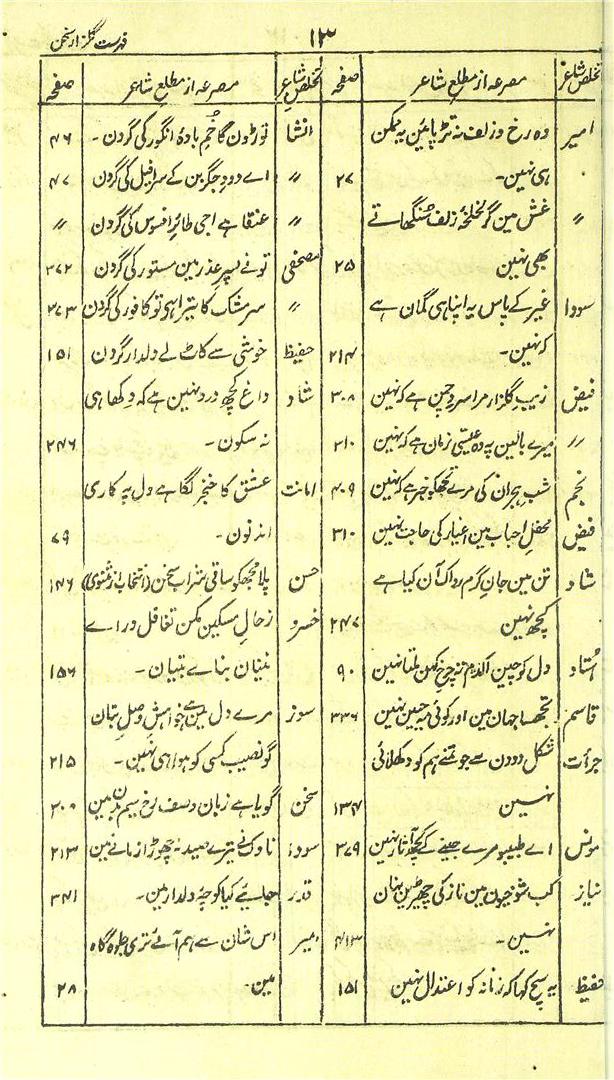 ۱۳
فہرست گلزار سخن
تخلص شاعر
مصرعہ از مطلع شاعر
صفحہ
امیر
وہ رخ و زلف نہ تڑپائین یہ ممکن
ہی نہین۔
۲۷
〃
غش مین گر لخلخۂ زلف سنگھاتے
بھی نہین
۲۵
سودا
غیر کے پاس یہ اپنا ہی گمان ہے
کہ نہین۔
۲۱۴
فیض
زیب گلزار مرا سرو چمن ہے کہ نہین
۳۰۸
〃
میرے بالین پہ وہ عیسی زمان ہے کہ نہین
۲۱۰
نجم
شب ہجران کی مرے تجھکو خبر ہے کہ نہین
۴۰۹
فیض
محفل احباب مین اغیار کی حاجت نہین
۳۱۰
شاد
تن مین جان گرم رواک آن کیا ہے
کچھ نہین
۲۴۷
استاد
دل کو چین اکدم تہ چرخ کہن ملتا نہین
۹۰
قاسم
تجھسا جہان مین اور کوئی مہ جبین نہین
۳۳۶
جرأت
شکل دودن سے جو تمنے ہم کو دکھلائی
نہین
۱۳۴
مونس
اے طبیبو مرے جینے کے کچھ آثار نہین
۳۷۹
نیاز
کب شوخیون مین ناز کی چھیڑین نہان
نہین۔
۴۱۳
حفیظ
یہ سچ کہا کہ زمانہ کو اعتدال نہین
۱۵۱
تخلص شاعر
مصرعہ از مطلع شاعر
صفحہ
انشا
توڑون گا خم بادۂ انگور کی گردن۔
۴۶
〃
اے دود جگر بن کے سرافیل کی گردن
۴۷
〃
عنقا ہے اجی طائر افسوس کی گردن
〃
مصحفی
تونے پس عذر مین مستور کی گردن
۲۷۲
〃
سر مشک کا تیرا ہی تو کافور کی گردن
۲۷۳
حفیظ
خوشی سے کاٹ لے دلدار گردن
۱۵۱
شاد
داغ کچھ درد نہین ہے کہ دکھا ہی
نہ سکون۔
۲۴۶
امانت
عشق کا خنجر لگا ہے دل پہ کاری
اندنون۔
۷۹
حسن
پلا مجھکو ساقی شراب سخن (انتخاب از مثنوی)
۱۴۶
خسرو
زحال مسکین مکن تغافل دراے
نینان بناے بتیان۔
۱۵۶
سوز
مرے دل مین ہے خواہش وصل بتان
گو نصیب کسی کو ہوا ہی نہین۔
۲۱۵
سخن
گویا ہے زبان وصف رخ سیم بدن مین
۲۰۰
سودا
ناوک نے تیرے صید نہ چھوڑا زمانے مین
۲۱۳
قدر
جلیے کیا کوچۂ دلدار مین۔
۳۴۱
امیر
اس شان سے ہم آئے تری جلوہ گاہ
مین۔
۲۸